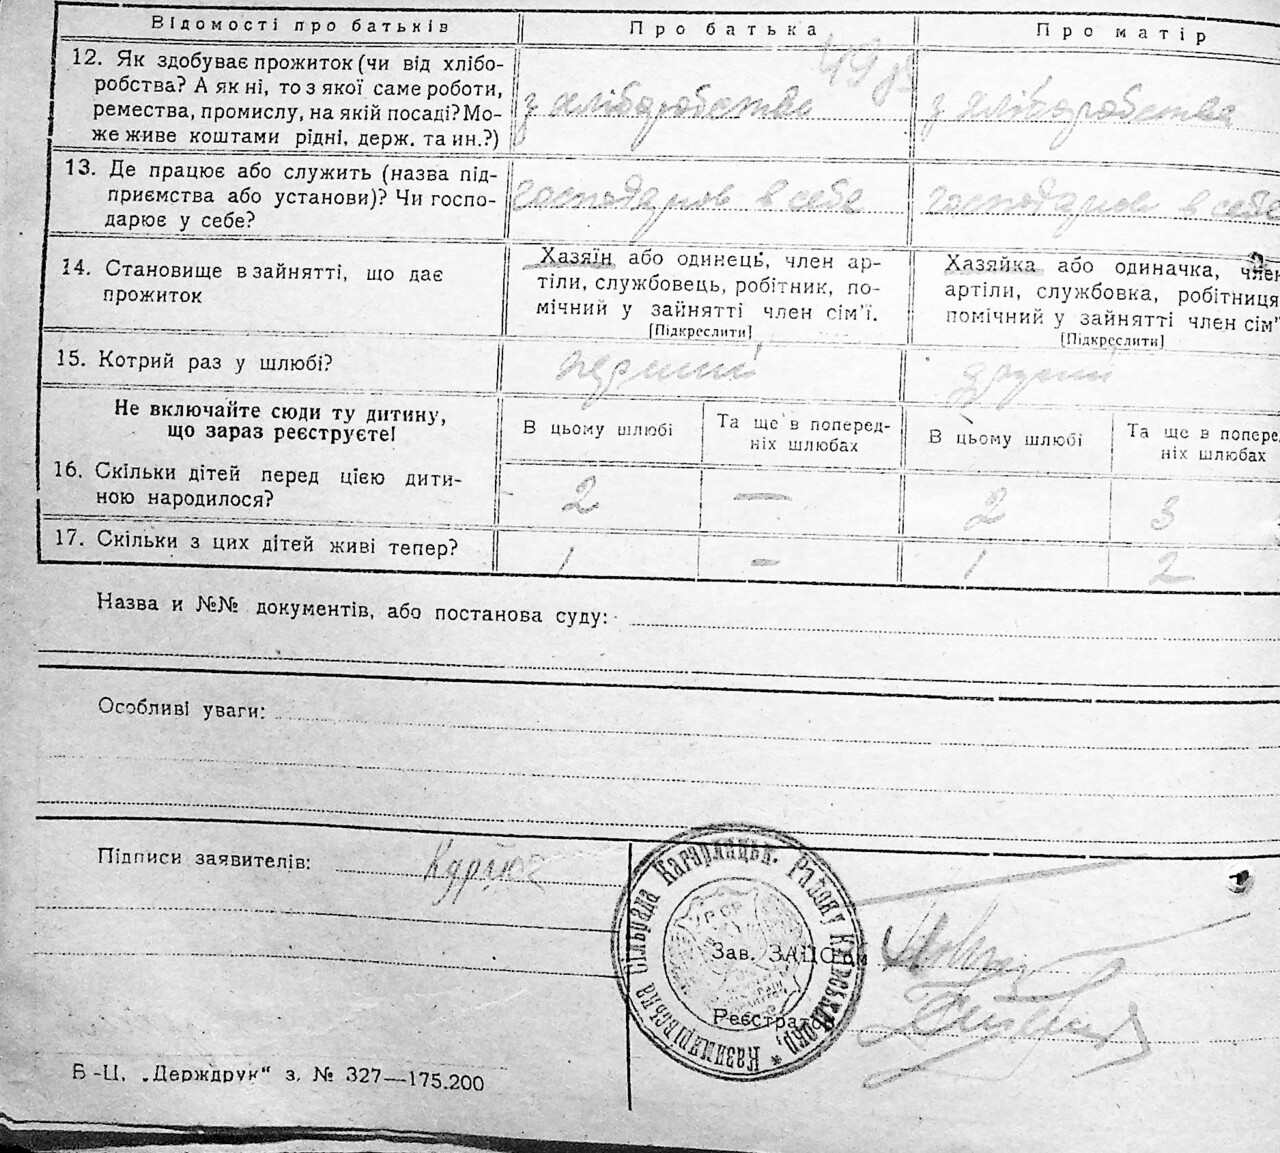 Відомості про батьків Про батька Про матір
12. Як здобуває прожиток (чи від хлібо-
робства? А як ні, то з якої саме роботи,
ремества, промислу, на якій посаді? Мо-
же живе коштами рідні, держ. та ин.?)
з хліборобства з хліборобства
13. Де працює або служить (назва під-
приємства або установи)? Чи госпо-
дарює у себе?
господарює в себе господарює в себе
14. Становище в зайнятті, що дає
прожиток
Хазяїн або одинець, член ар-
тіли, службовець, робітник, по-
мічний у зайнятті член сім'ї.
[Підкреслити]
Хазяйка або одиначка, член
артіли, службовка, робітниця
помічний у зайнятті член сім'
[Підкреслити]
15. Котрий раз у шлюбі? перший другий
Не включайте сюди ту дитину,
що зараз реєструєте!
В цьому шлюбі Та ще в поперед-
ніх шлюбах
В цьому шлюбі Та ще в поперед
ніх шлюбах
16. Скільки дітей перед цією дити-
ною народилося?
2 — 2 3
17. Скільки з цих дітей живі тепер? 1 — 1 2
Назва и №№ документів, або постанова суду:
Особливі уваги:
Підписи заявителів:
Казимирівська сільрада Кагарлацьк. Району
УСРР
Зав. ЗАЦСом
Реєстратор
Б.-Ц. „Держдрук" з. № 327—175.200